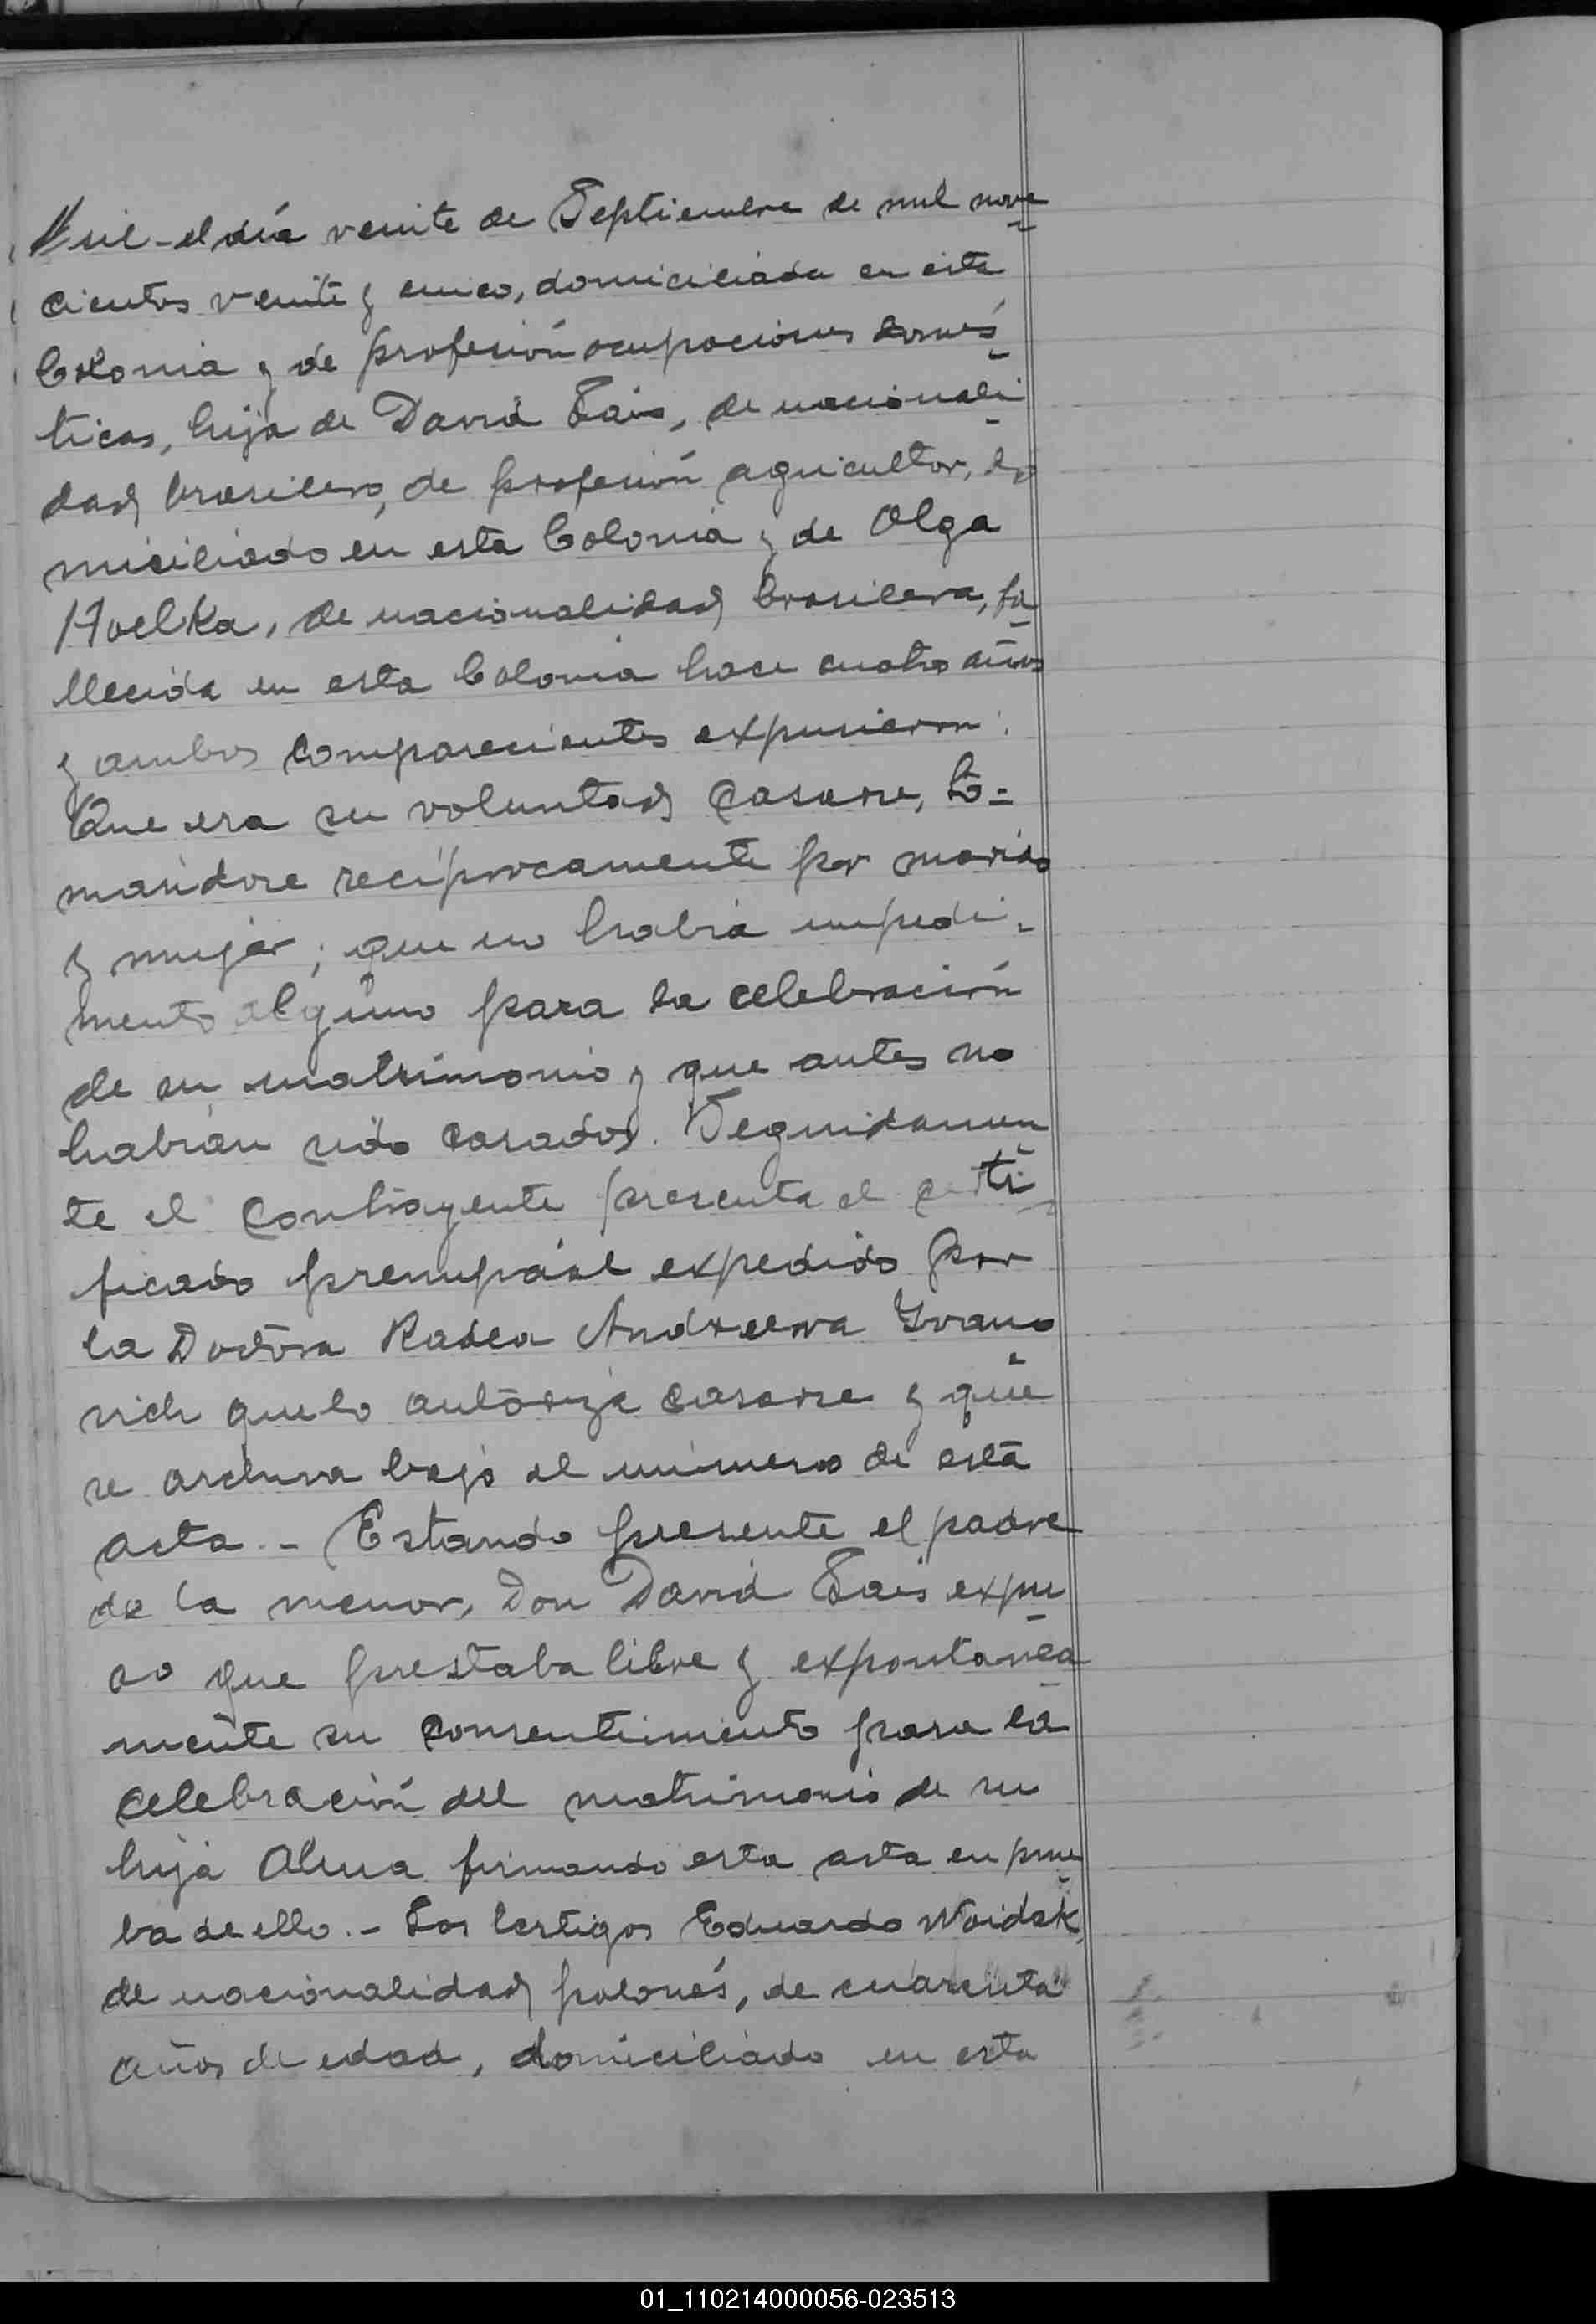 sil - el día veinte de Septiembre de mil nove
cientos veinte y cinco, domiciliada en esta
Colonia y de profesión ocupaciones domés
ticas, hija de David Sais, de nacionali
dad brasilero, de profesión agricultor, do
miciliado en esta Colonia y de Olga
Hoelka, de nacionalidad brasilera, fa
llecida en esta Colonia hace cuatro años
y ambos comparecientes expusieron:
Que era su voluntad casarse, to=
mandose recíprocamente por marido
y mujer; que no habia impedi-
mento alguno para la celebración
de su matrimonio y que antes no
habian sido casados. Seguidamen
te el contrayente presenta el certi
ficado prenupcial expedido por
la Doctora Radea Andreewa Yvano
vich que lo autoriza casarse y que
se archiva bajo el número de esta
acta. - Estando presente el padre
de la menor, Don David Sais expu
so que prestaba libre y expontanea
mente su consentimiento para la
celebración del matrimonio de su
hija Alma firmando esta acta en prue
ba de ello. - Los testigos Eduardo Woidak,
de nacionalidad polonés, de cuarenta
años de edad, domiciliado en esta
01_110214000056-023513